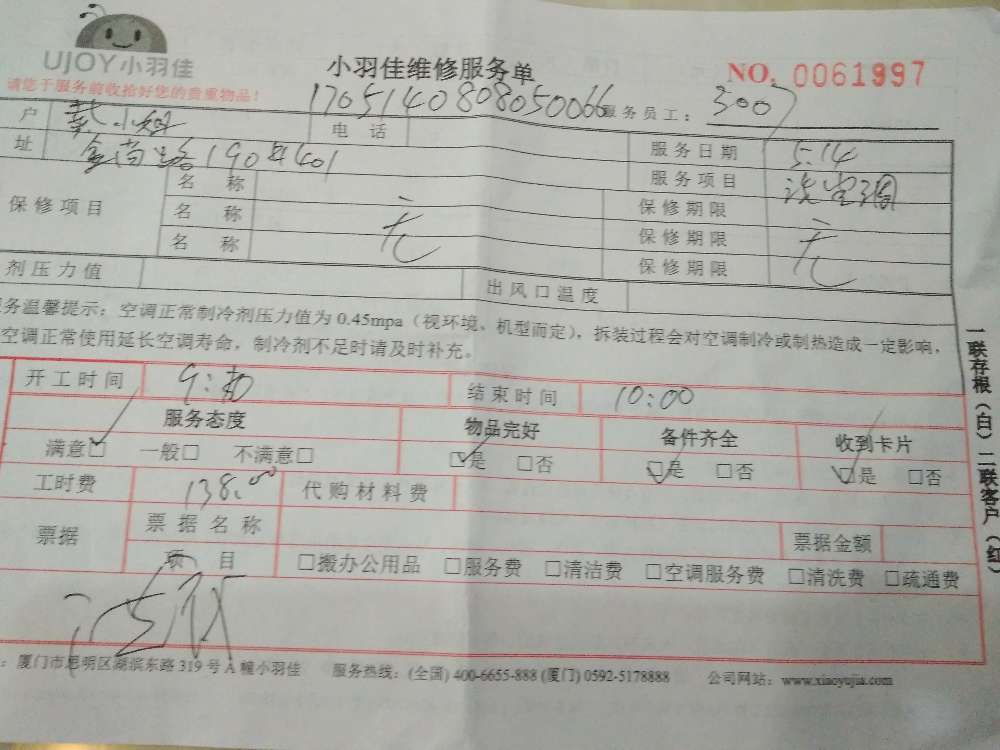 UJOY小羽佳
小羽佳维修服务单
NO. 0061997
请您于服务前收拾好您的贵重物品！
1705140808050066 服务员工： 3007
户 小姐 电 话 服务日期 5.14
址 金尚路190 401 服务项目 洗空调
保修项目 名 称 无 保修期限 无
名 称 保修期限
名 称 保修期限
剂压力值 出风口温度
务温馨提示：空调正常制冷剂压力值为 0.45mpa（视环境、机型而定），拆装过程会对空调制冷或制热造成一定影响，
空调正常使用延长空调寿命，制冷剂不足时请及时补充。
开工时间 结束时间 10:00
服务态度 物品完好 备件齐全 收到卡片
满意□ 一般□ 不满意□ □是 □否 □是 □否 □是 □否
工时费 138.00 代购材料费
票据 票 据 名 称 票据金额
项 目 □搬办公用品 □服务费 □清洁费 □空调服务费 □清洗费 □疏通费
：厦门市思明区湖滨东路 319 号 A 幢小羽佳 服务热线：(全国) 400-6655-888 (厦门) 0592-5178888 公司网站：www.xiaoyujia.com
一联存根（白）二联客户（红）